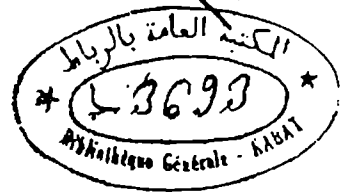 المكتبة العامة بالرباط
3693
Bibliothèque Générale - RABAT